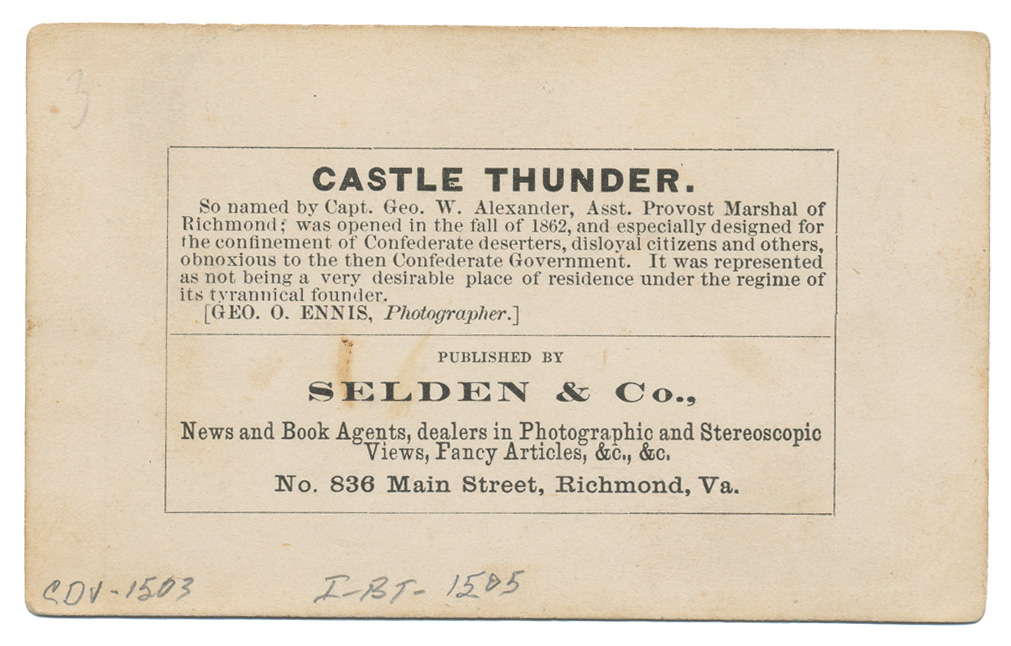 3
CASTLE THUNDER.
So named by Capt. Geo. W. Alexander, Asst. Provost Marshal of
Richmond; was opened in the fall of 1862, and especially designed for
the confinement of Confederate deserters, disloyal citizens and others,
obnoxious to the then Confederate Government. It was represented
as not being a very desirable place of residence under the regime of
its tyrannical founder.
[GEO. O. ENNIS, Photographer.]
PUBLISHED BY
SELDEN & Co.,
News and Book Agents, dealers in Photographic and Stereoscopic
Views, Fancy Articles, &c., &c.
No. 836 Main Street, Richmond, Va.
CDV-1503 I-BT-1505